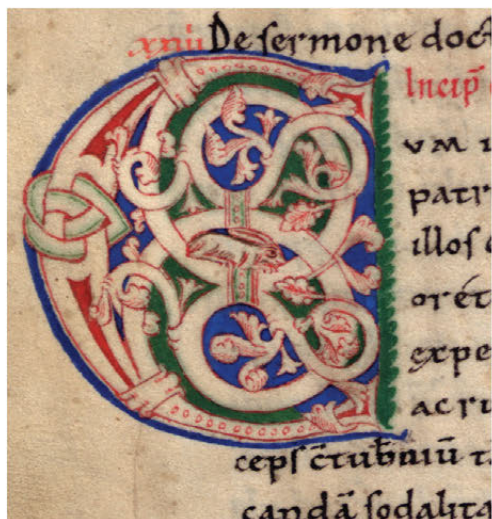 xxiiii De sermone doct
Incip̄
C
vm i
patr
illos
oret
expe
acri
ceps c̄tub̄niū t
candā sodalita